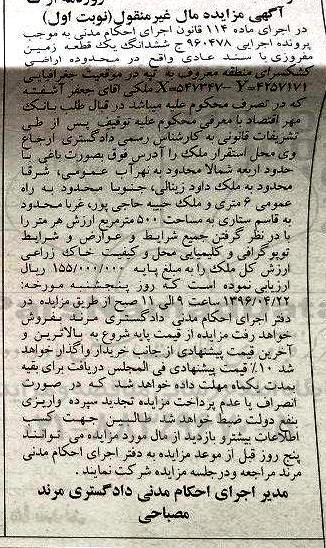 آگهی مزایده مال غیرمنقول(نوبت اول)
در اجرای ماده ۱۱۴ قانون اجرای احکام مدنی به موجب
پرونده اجرایی ۹۶۰۴۷۸ ج ششدانگ یک قطعه زمین
مفروزی با سند عادی واقع در محدوده اراضی
کشکسرای منطقه معروف به تپه در موقعیت جغرافیایی
X=۵۴۷۳۴۷- Y=۴۲۵۷۱۷۱ ملکی آقای جعفر آشفته
که در تصرف محکوم علیه میباشد در قبال طلب بانک
مهر اقتصاد با معرفی محکوم علیه توقیف پس از طی
تشریفات قانونی به کارشناس رسمی دادگستری ارجاع
وی محل استقرار ملک را آدرس فوق بصورت باغی با
حدود اربعه شمالا محدود به نهرآب عمومی، شرقا
محدود به ملک داود زینالی، جنوبا محدود به راه
عمومی ۶ متری و ملک حبیبه حاجی پور، غربا محدود
به قاسم ستاری به مساحت ۵۰۰ مترمربع ارزش هر متر را
با در نظر گرفتن جمیع شرایط و عوارض و شرایط
توپوگرافی و کلیمیایی محل و کیفیت خاک زراعی
ارزش کل ملک را به مبلغ پایه ۱۵۵/۰۰۰/۰۰۰ ریال
ارزیابی نموده است که روز پنجشنبه مورخه:
۱۳۹۶/۰۴/۲۲ ساعت ۹ الی ۱۱ صبح از طریق مزایده در
دفتر اجرای احکام مدنی دادگستری مرند بفروش
خواهد رفت مزایده از قیمت پایه شروع به بالاترین و
آخرین قیمت پیشنهادی از جانب خریدار واگذار خواهد
شد ۱۰٪ قیمت پیشنهادی فی المجلس دریافت برای بقیه
بمدت یکماه مهلت داده خواهد شد که در صورت
انصراف یا عدم پرداخت مزایده تجدید سپرده واریزی
بنفع دولت ضبط خواهد شد طالبین جهت کسب
اطلاعات بیشترو بازدید از مال مورد مزایده می توانند
پنج روز قبل از موعد مزایده به دفتر اجرای احکام مدنی
مرند مراجعه ودرجلسه مزایده شرکت نمایند.
مدیر اجرای احکام مدنی دادگستری مرند
مصباحی